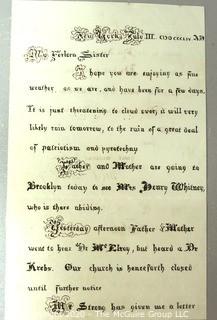 New York, July III. MDCCCLIV
My Federn Sister
I hope you are enjoying as fine
weather, as we are, and have been for a few days.
It is just threatening to cloud over, it will very
likely rain tomorrow, to the ruin of a great deal
of patriotism and pyrotechny
Father and Mother are going to
Brooklyn today to see Mrs Henry Whitney,
who is there abiding.
Yesterday afternoon Father & Mother
went to hear Dr McElroy, but heard a Dr
Krebs. Our church is henceforth closed
until further notice
Mr Strong has given me a letter
2020 - The McGuire Group LLC